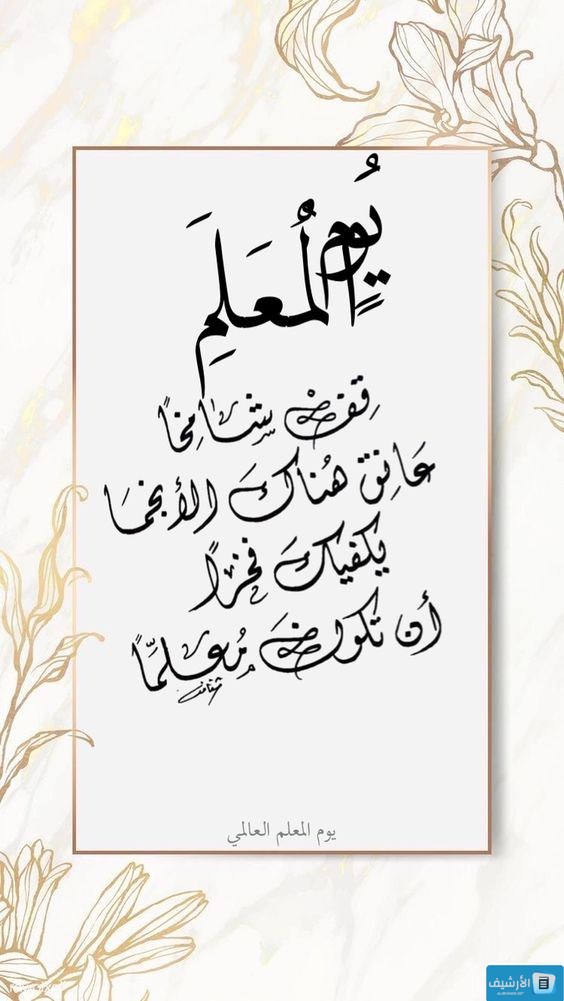 يُومِ
المُعَلِمَ
قِف شامِخًا
عَانِق هُناكَ الأنجُما
يكفيكَ فخرًا
أن تكونَ مُعلِّمًا
يوم المعلم العالمي
الأرشيف